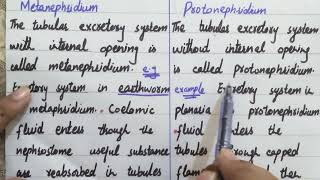 Metanephridium
The tubular excretory system
with internal opening is
called metanephridium. e.g
Excretory system in earthworm
is metaphridium. Coelomic
fluid enters through the
nephrostome useful substance
are reabsorbed in tubules
Protonephridium
The tubular excretory system
without internal opening
is called protonephridium.
example Excretory system in
planaria protonephridium
fluid enters the
tubules through capped
flame